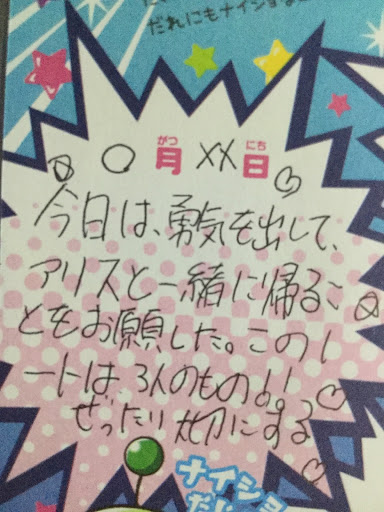 だれにもナイショ
がつ にち
○月××日
今日は、勇気を出して、
アリスと一緒に帰るこ
とをお願した。このノ
ートは、3人のもの!!
ぜったい大切にする
ナイショ